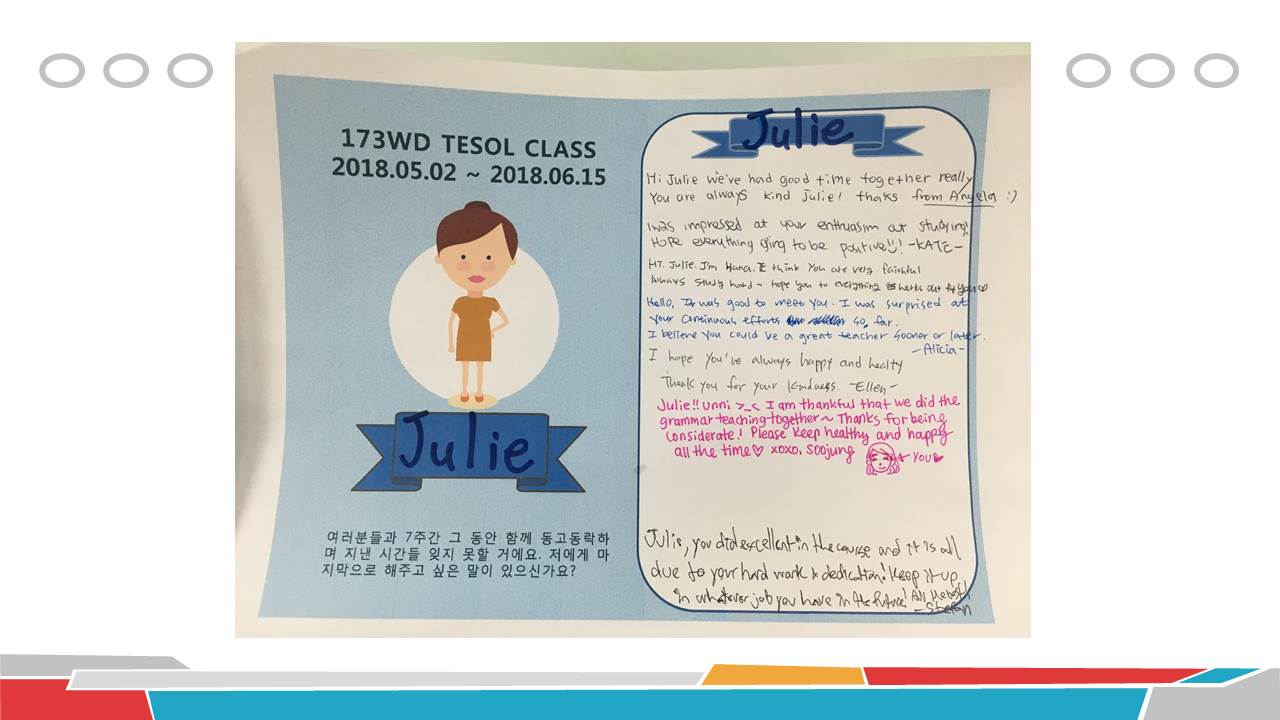 173WD TESOL CLASS
2018.05.02 ~ 2018.06.15
Julie
여러분들과 7주간 그 동안 함께 동고동락하
며 지낸 시간들 잊지 못할 거에요. 저에게 마
지막으로 해주고 싶은 말이 있으신가요?
Julie
Hi Julie we've had good time together really
You are always kind Julie! thaks from Angela :)
I was impressed at your enthuasim at studying!
Hope everything ging to be positive!! -KATE-
HI. Julie. I'm Hana. I think you are very faithful
Always study hard~ hope you to everything works out for you♡
Hello, It was good to meet you. I was surprised at
your continuous efforts so, far.
I believe you could be a great teacher sooner or later.
-Alicia-
I hope you've always happy and healty
Thank you for your kindness. -Ellen-
Julie!! unni >_< I am thankful that we did the
grammar teaching together~ Thanks for being
considerate! Please keep healthy and happy
all the time♡ xoxo, Soojung ← YOU♥
Julie, you did excellent in the course and it is all
due to your hard work & dedication! Keep it up
in whatever job you have in the future! All the best!
-Stefan